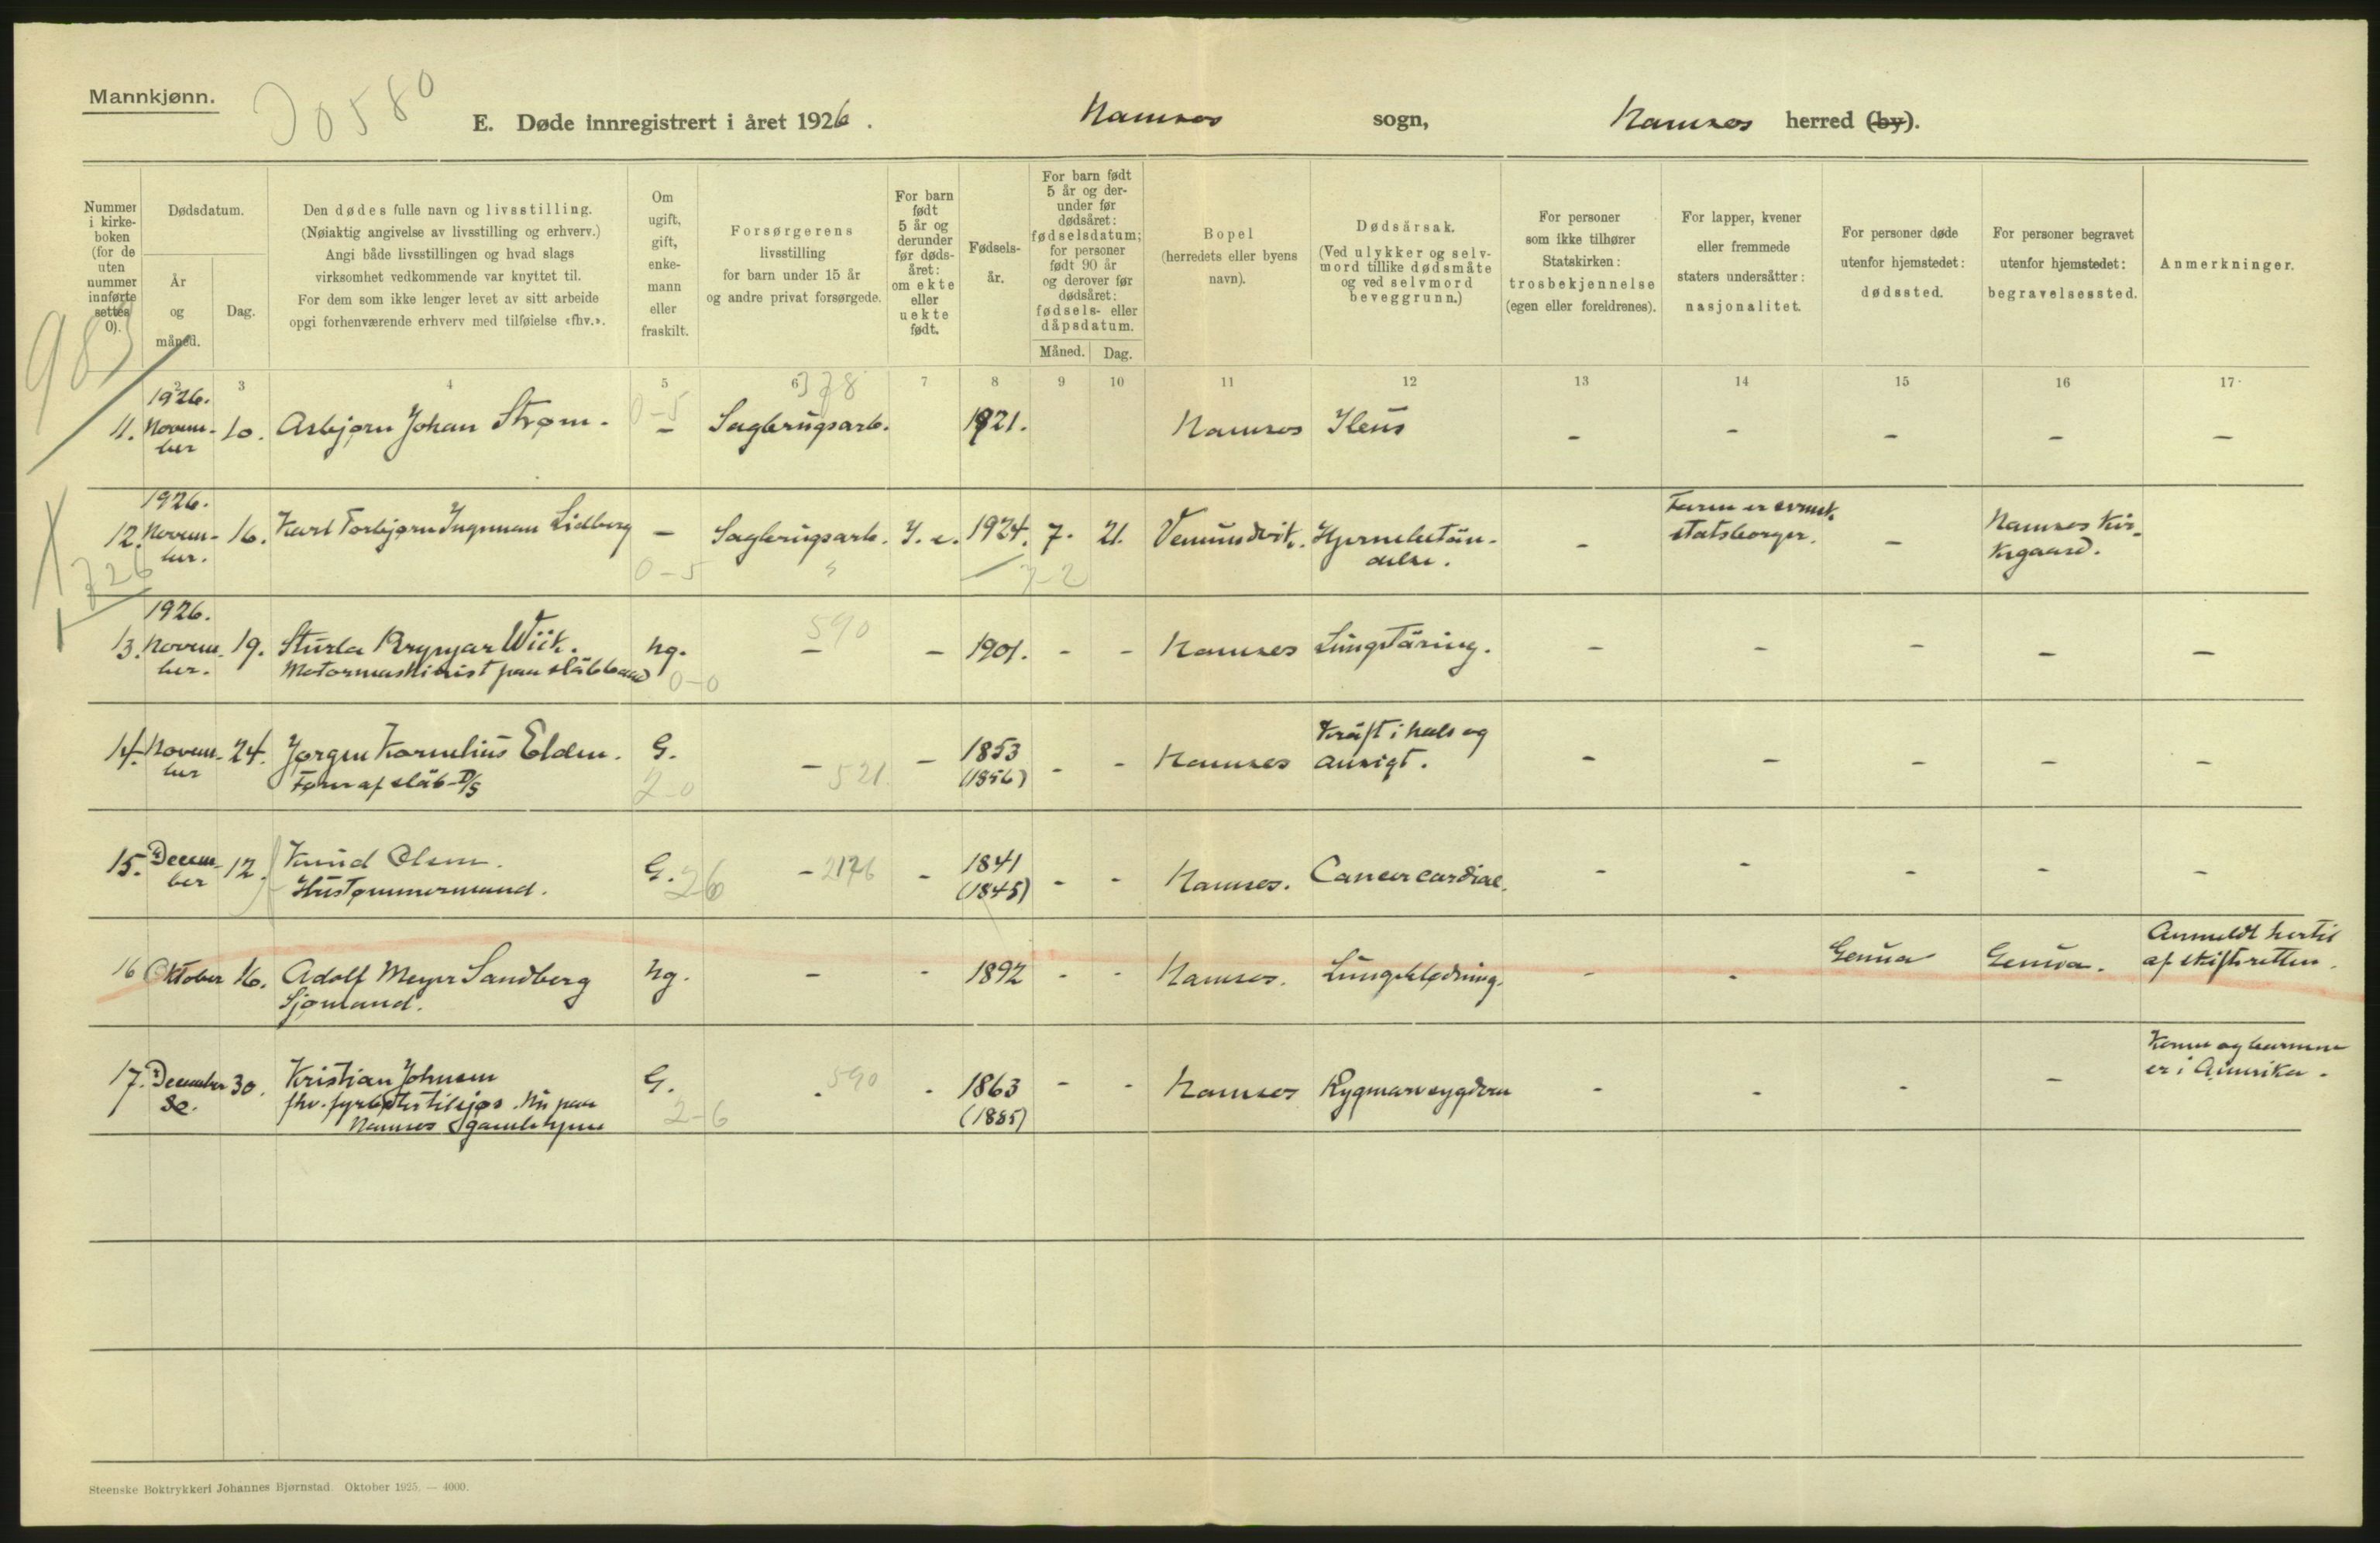 Mannkjønn.
J 0580
E. Døde innregistrert i året 1926.
Namsos sogn,
Namsos herred (by).
Nummer i kirkeboken (for de uten nummer innførte settes 0).
Dødsdatum.
År og måned.
Dag.
Den dødes fulle navn og livsstilling.
(Nøiaktig angivelse av livsstilling og erhverv.)
Angi både livsstillingen og hvad slags
virksomhet vedkommende var knyttet til.
For dem som ikke lenger levet av sitt arbeide
opgi forhenværende erhverv med tilføielse «fhv.».
Om ugift, gift, enkemann eller fraskilt.
Forsørgerens
livsstilling
for barn under 15 år
og andre privat forsørgede.
For barn født 5 år og derunder før dødsåret: om ekte eller uekte født.
Fødselsår.
For barn født 5 år og derunder før dødsåret: fødselsdatum; for personer født 90 år og derover før dødsåret: fødsels- eller dåpsdatum.
Måned.
Dag.
Bopel
(herredets eller byens
navn).
Dødsårsak.
(Ved ulykker og selvmord tillike dødsmåte og ved selvmord beveggrunn.)
For personer
som ikke tilhører
Statskirken:
trosbekjennelse
(egen eller foreldrenes).
For lapper, kvener
eller fremmede
staters undersåtter:
nasjonalitet.
For personer døde
utenfor hjemstedet:
dødssted.
For personer begravet
utenfor hjemstedet:
begravelsessted.
Anmerkninger.
2 3 4 5 6 7 8 9 10 11 12 13 14 15 16 17
983
1926.
11. November 10. Asbjørn Johan Strøm. 0-5 - Sagbrugsarb. 378 1921. Namsos Ileus - - - - -
1926.
12. November. 16. Karl Torbjørn Ingeman Lidberg - 0-5 Sagbrugsarb. I. e. 1924. 7. 21. Vemundvik. Hjernebetändelse. - Faren er svensk statsborger. - Namsos Kirkegaard.
726
7-2
1926.
13. November. 19. Sturla Brynjar Wiik. ug. - 590 - 1901. - - Namsos Lungetäring. - - - - -
Motormaskinist paa släbbaad 0-0
14. November 24. Jørgen Kornelius Elden. G. - 521 - 1853 (1856) - - Namsos Kräft i hals og ansigt. - - - - -
Fører af släb-D/S 2-0
15. December 12. Knud Olsen. G. 26 - 2176 - 1841 (1845) - - Namsos. Cancer cardiae. - - - - -
Hustømmermand.
16 Oktober 16. Adolf Meyer Sandberg ug. - - 1892 - - Namsos. Lungeblødning. - - Genua Genua. Anmeldt hertil af skifteretten.
Sjømand.
17. December 30. Kristian Johnsen G. 590 - 1863 (1885) - - Namsos Rygmarvsygdom - - - - Kone og børnene er i Amerika.
fhv. fyrbøter tilsjøs. Nu paa
Namsos gamlehjem 2-6
Steenske Boktrykkeri Johannes Bjørnstad. Oktober 1925. — 4000.